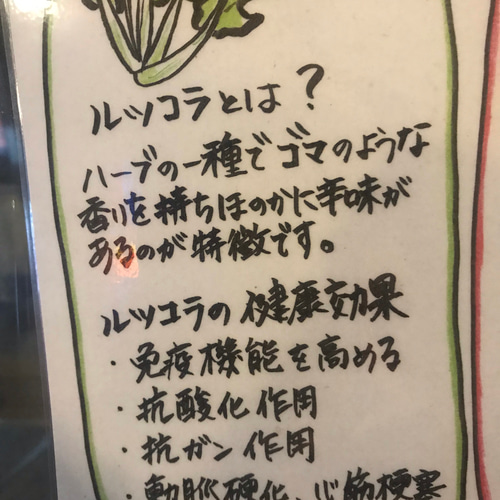 ルッコラとは？
ハーブの一種でゴマのような
香りを持ちほのかに辛味が
あるのが特徴です。
ルッコラの健康効果
・免疫機能を高める
・抗酸化作用
・抗ガン作用
・動脈硬化、心筋梗塞